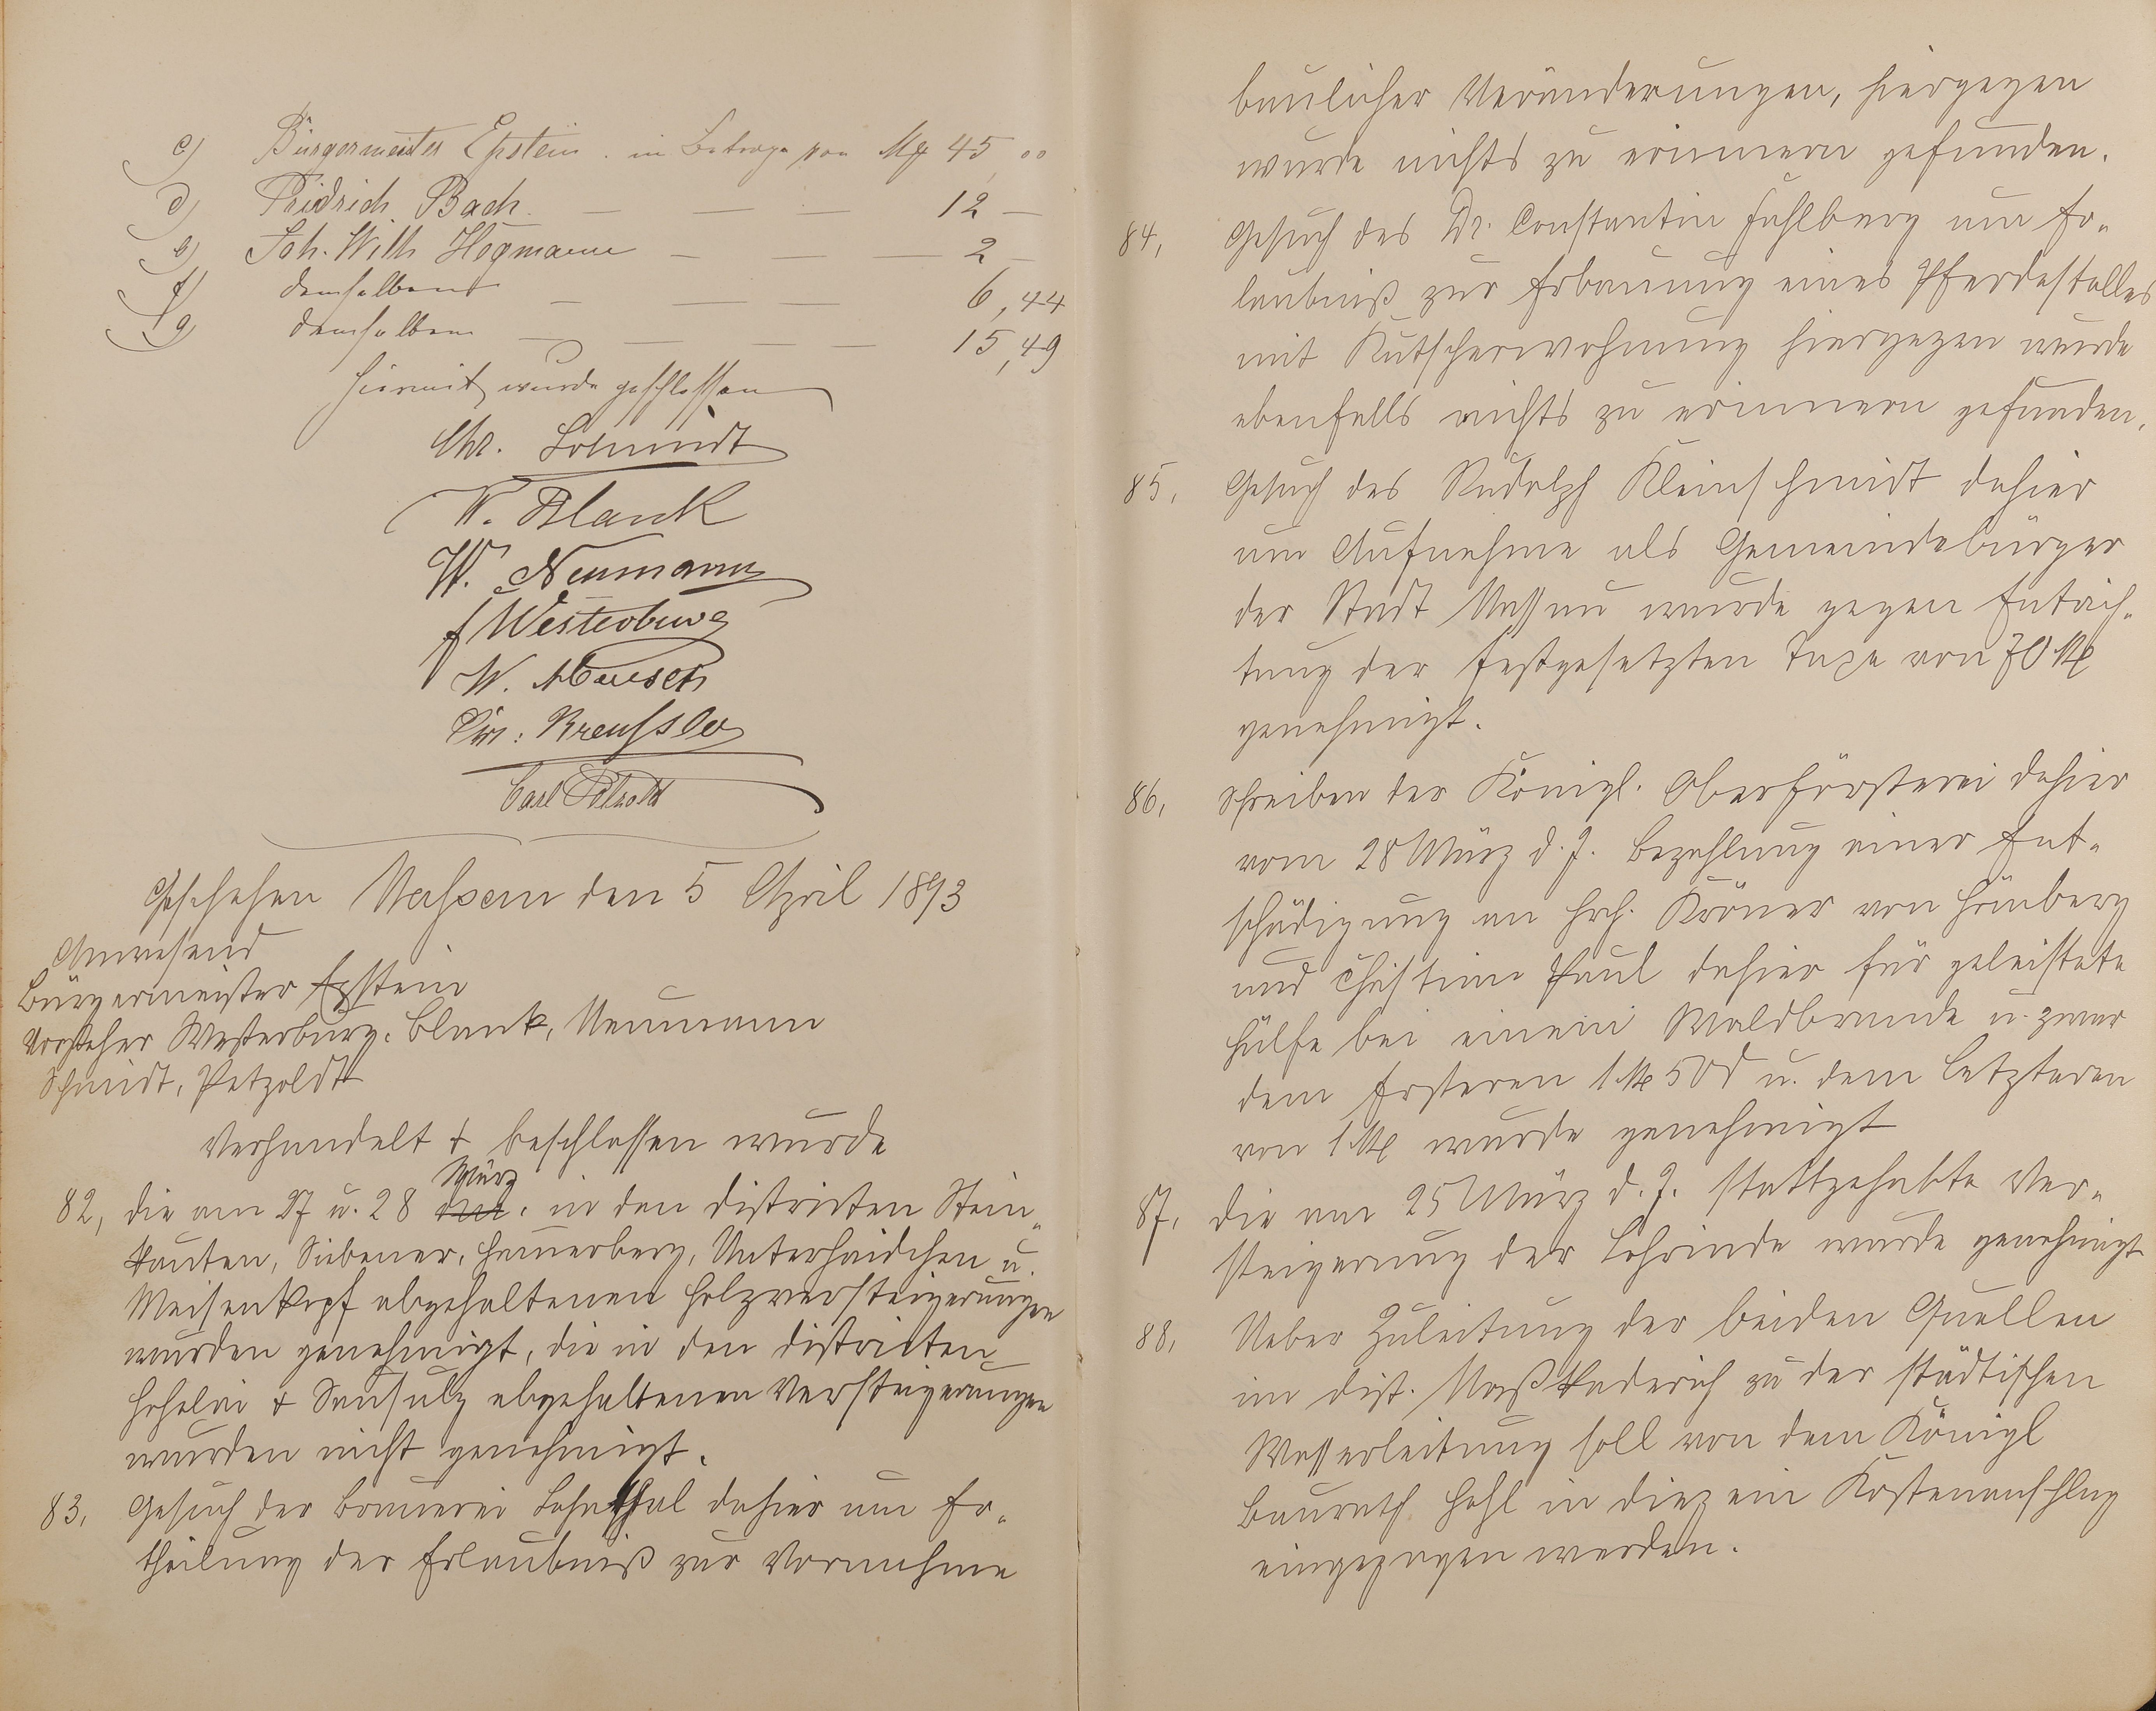 c) Bürgermeister Epstein in Betrage von Mk 45,00
d) Fridrich Bach — — — 12 —
e) Joh. Wilh Högmann — — — 2 —
f) demselben — — — 6,44
g) demselben — — — 15,49
Hiermit wurde geschlossen
Chr. Schmidt
W. Blank
W. Neumann
f Westerburg
W. Buesch
Chr: Kreussler
Carl Petzoldt
Geschehen Nassau den 5 April 1893
Anwesend
Bürgermeister Epstein
Vorsteher Westerburg, Blank, Neumann
Schmidt, Petzoldt
Verhandelt + beschlossen wurde
März
82, die am 27 u. 28 in den Districten Stein„
kauten, Siebener, Hamerberg, Unterhaidchen u.
Meisenkopf abgehaltenen Holzversteigerungen
wurden genehmigt, die in den Districten
Hohelai + Sausulz abgehaltenen Versteigerungen
wurden nicht genehmigt.
83, Gesuch der Brauerei Lahnthal dahier um Er„
theilung der Erlaubniß zur Vornahme
baulicher Veränderungen, hiergegen
wurde nichts zu erinnern gefunden.
84, Gesuch des Dr. Constantin Fahlberg um Er„
laubniß zur Erbauung eines Pferdestalles
mit Kutscherwohnung hiergegen wurde
ebenfalls nichts zu erinnern gefunden.
85, Gesuch des Rudolph Kleinschmidt dahier
um Aufnahme als Gemeindebürger
der Stadt Nassau wurde gegen Entrich„
tung der festgesetzten Taxe von 70 M
genehmigt.
86, Schreiben der Königl. Oberförsterei dahier
vom 28 März d. J. Bezahlung einer Ent„
schädigung an Hrch. Kröner von Hömberg
und Christian Paul dahier für geleistete
Hülfe bei einem Waldbrande u. zwar
dem Ersteren 1 M 50 d u. dem Letzteren
von 1 M wurde genehmigt
87, Die am 25 März d. J. stattgehabte Ver„
steigerung der Lohrinde wurde genehmigt
88, Ueber Zuleitung der beiden Quellen
im Dist. Naßkaderich zu der städtischen
Wasserleitung soll von dem Königl
Baurath Hehl in Diez ein Kostenanschlag
eingezogen werden.